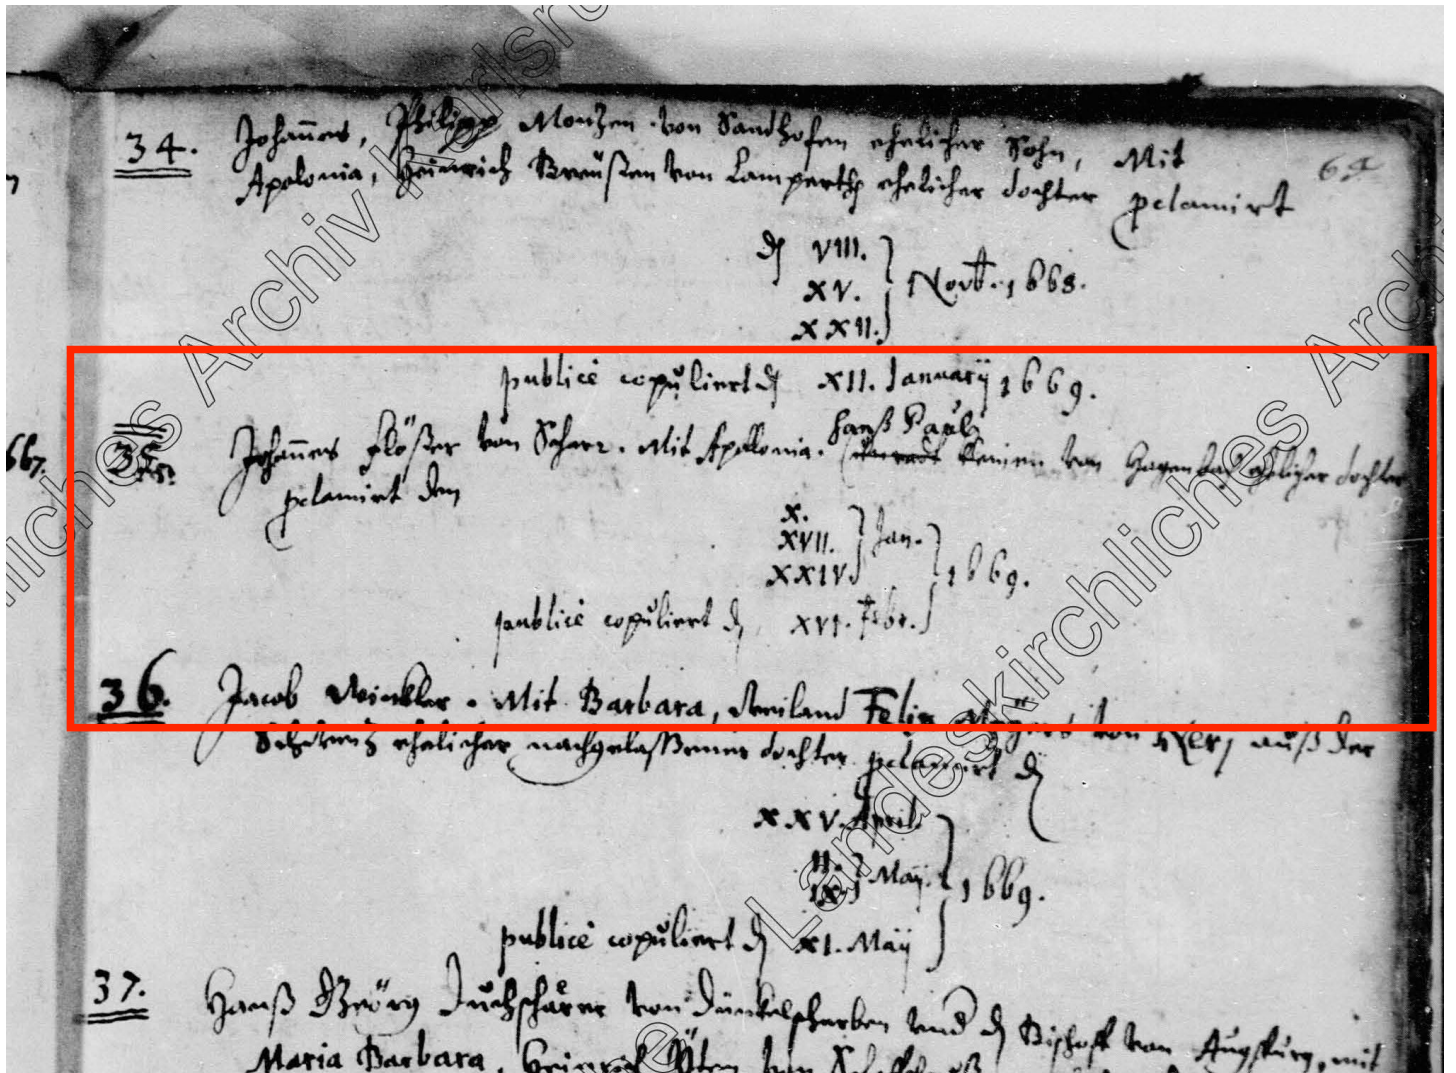 34. Johannes, Philipp Montzen von Sandhofen ehelicher Sohn, Mit
69
Apolonia, Heinrich Kreüßen von Lamperth ehelicher dochter pclamirt
VIII.
XV. Novb. 1668.
XXII.
publicè copuliert XII. Januarÿ 1669.
667.
Hanß Paul
35. Johannes Flößer von Scharr. Mit Apollonia. von ehelicher dochter
pclamirt den
X.
XVII. Jan.
XXIV. 1669.
publicè copuliert XVI. Febr.
36. Jacob Winkler. Mit Barbara, Weiland Felix von auß der
Schweitz ehelicher nachgelaßener dochter pclamirt
XXV. April.
II. Maÿ. 1669.
IX.
publicè copuliert XI. Maÿ
37. Hanß Geörg von Dünkelscherben vnd Bischoff von Augspurg, mit
Maria Barbara, Heinrich von
Landeskirchliches Archiv Karlsruhe